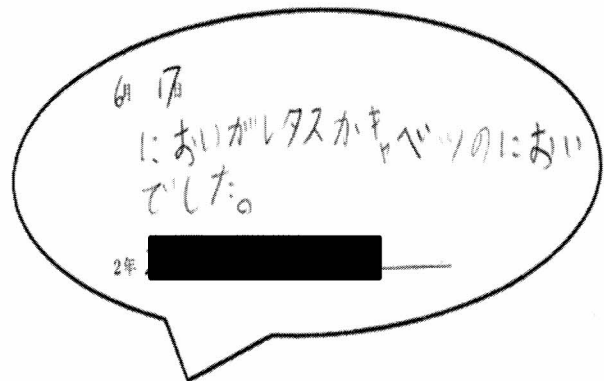 6月 17日
においがレタスかキャベツのにおい
でした。
2年